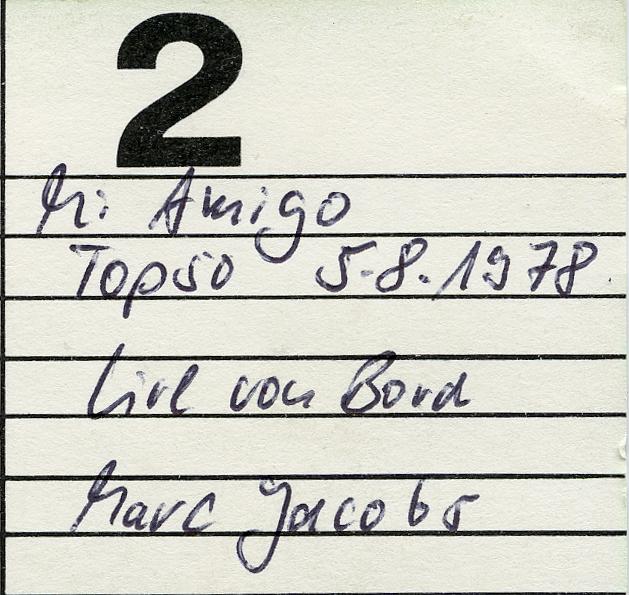 2
Mi Amigo
Top50 5.8.1978
Live von Bord
Marc Jacobs